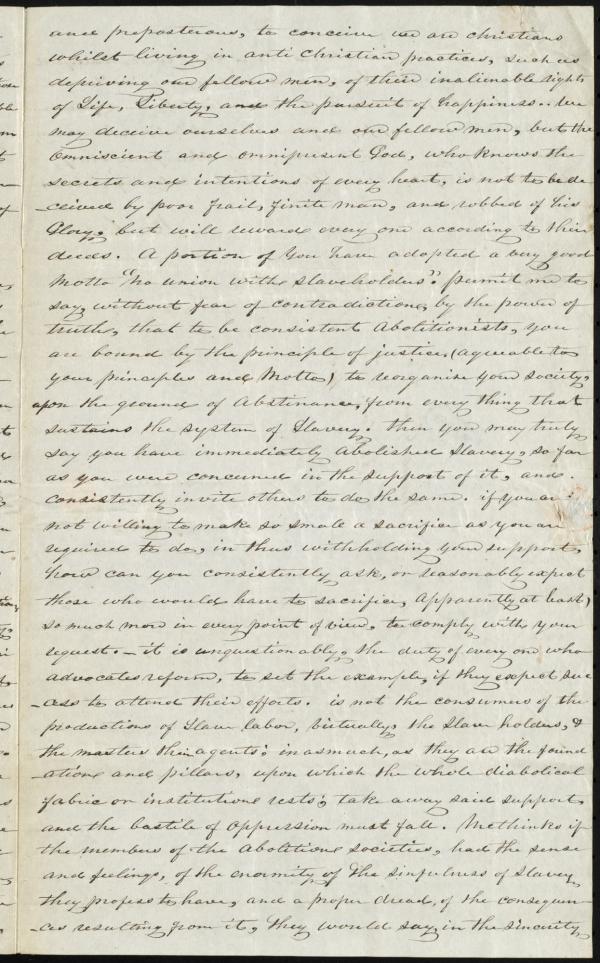 and preposterous, to conceive we are christians
whilst living in anti Christian practices, such as
depriving our fellow men, of their inalienable rights
of Life, Liberty, and the pursuit of happiness. we
may deceive ourselves and our fellow men, but the
Omniscient and omnipresent God, who knows the
secrets and intentions of every heart, is not to be de
-ceived by poor frail, finite man, and robbed of his
Glory, but will reward every one according to their
deeds. A portion of You have adopted a very good
Motto "No union with slaveholders". permit me to
say, without fear of contradiction, by the power of
truth, that to be consistent Abolitionists, you
are bound by the principle of justice, (agreeable to
your principles and Motto) to reorganise your society,
upon the ground of Abstinance, from every thing that
sustains the system of Slavery. then you may truly
say you have immediately Abolished Slavery, so far
as you were concerned in the support of it, and
consistently invite others to do the same. if you are
not willing to make so small a sacrifice as you are
required to do, in thus withholding your support,
how can you consistently ask, or reasonably expect
those who would have to sacrifice, Apparently (at least)
so much more in every point of view, to comply with your
request. - it is unquestionably, the duty of every one who
advocates reform, to set the example, if they expect suc
-cess to attend their efforts. is not the consumers of the
productions of Slave labor, virtually, the Slave holders, &
the masters their agents; inasmuch, as they are the found
-ations and pillars, upon which the whole diabolical
fabric or institutions rests; take away said support
and the bastile of Oppression must fall. Methinks if
the members of the Abolitions societies, had the sense
and feelings, of the enormity of the sinfulness of Slavery
they profess to have, and a proper dread, of the consequen
-ces resulting from it, they would say, in the sincerity